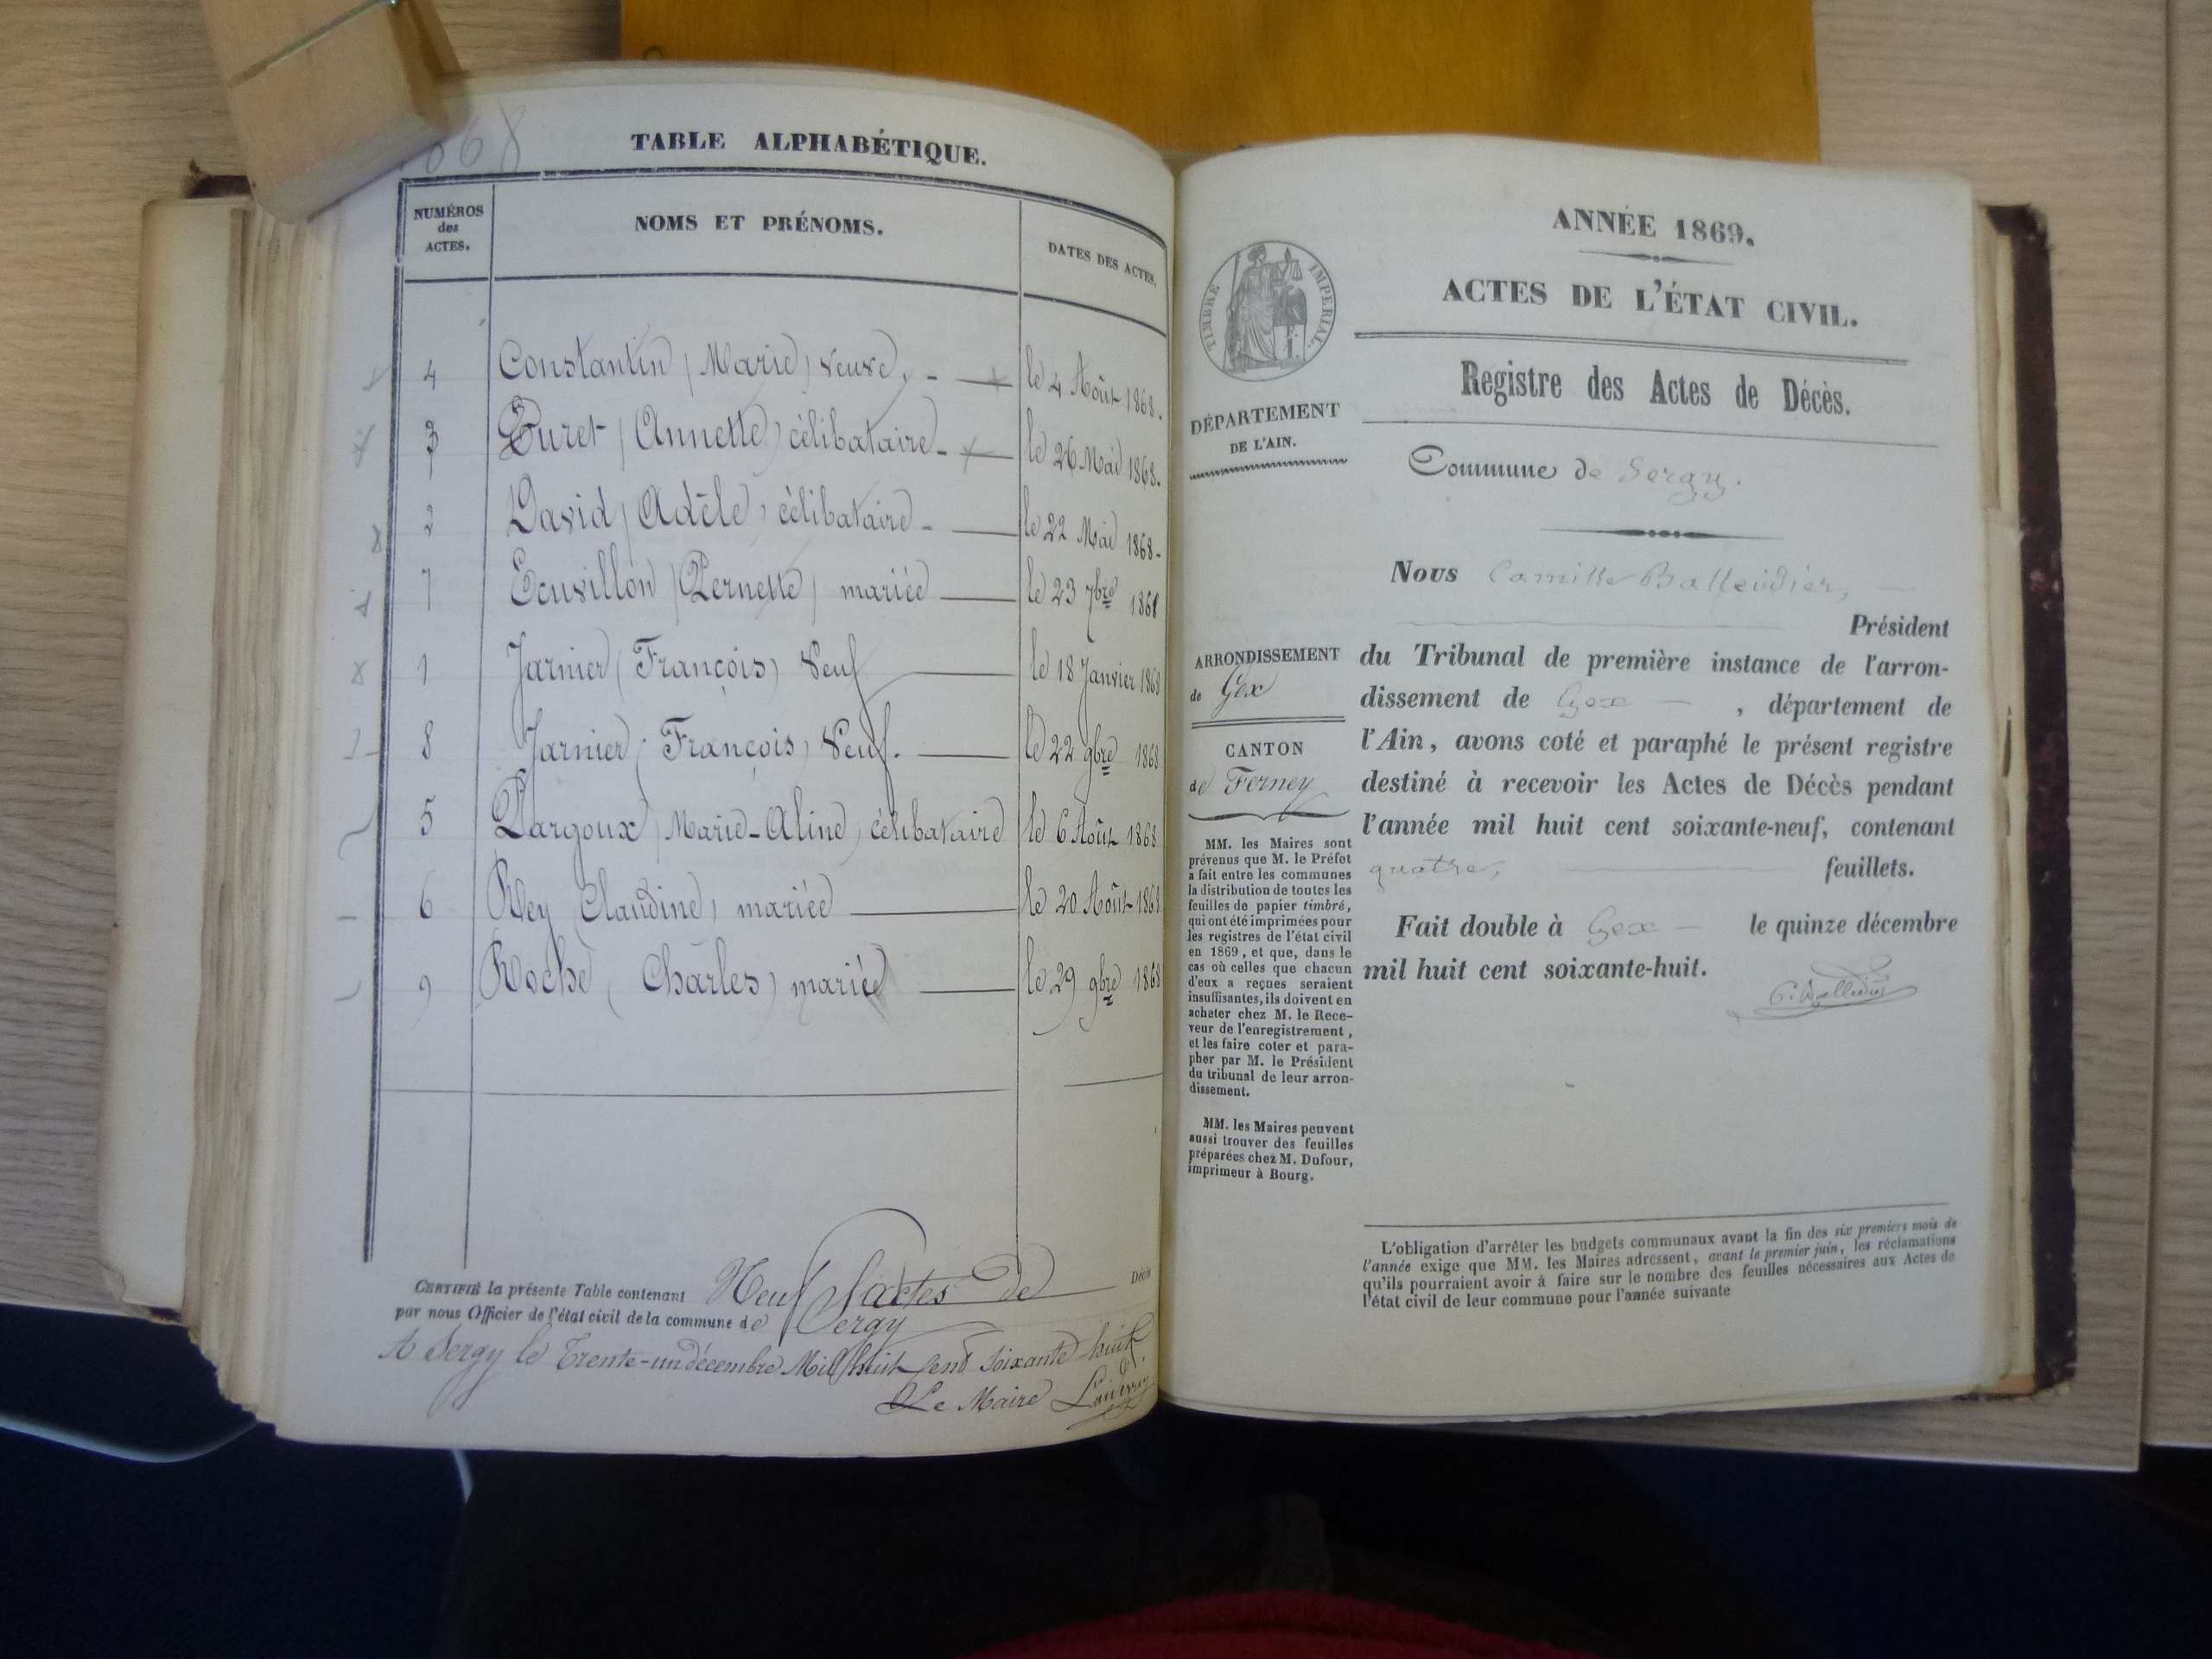 1868
TABLE ALPHABÉTIQUE.
NUMÉROS
des
ACTES.
NOMS ET PRÉNOMS.
DATES DES ACTES.
4 Constantin (Marie) veuve, le 4 Août 1868.
3 Annette) célibataire le 26 Mai 1868.
2 David (Adèle) célibataire le 22 Mai 1868
7 Ecuvillon (Pernette) mariée le 23 7bre 1868
1 Jarnier (François) Veuf le 18 Janvier 1868
8 Jarnier (François) Veuf. le 22 9bre 1868
5 Pargoux (Marie-Aline) célibataire le 6 Août 1868
6 Rey (Claudine) mariée le 20 Août 1868
9 Roche (Charles) marié le 29 9bre 1868
CERTIFIÉ la présente Table contenant Neuf actes de Décès
par nous Officier de l'état civil de la commune de Sergy
A Sergy le Trente-un décembre Mil huit cent soixante huit.
Le Maire
ANNÉE 1869.
ACTES DE L'ÉTAT CIVIL.
TIMBRE IMPÉRIAL.
Registre des Actes de Décès.
DÉPARTEMENT
DE L'AIN.
Commune de Sergy.
Nous Camille Balleidier,
Président
du Tribunal de première instance de l'arron-
dissement de Gex, département de
l'Ain, avons coté et paraphé le présent registre
destiné à recevoir les Actes de Décès pendant
l'année mil huit cent soixante-neuf, contenant
quatre, feuillets.
Fait double à Gex le quinze décembre
mil huit cent soixante-huit.
C. Balleidier
ARRONDISSEMENT
de Gex
CANTON
de Ferney
MM. les Maires sont
prévenus que M. le Préfet
a fait entre les communes
la distribution de toutes les
feuilles de papier timbré,
qui ont été imprimées pour
les registres de l'état civil
en 1869, et que, dans le
cas où celles que chacun
d'eux a reçues seraient
insuffisantes, ils doivent en
acheter chez M. le Rece-
veur de l'enregistrement,
et les faire coter et para-
pher par M. le Président
du tribunal de leur arron-
dissement.
MM. les Maires peuvent
aussi trouver des feuilles
préparées chez M. Dufour,
imprimeur à Bourg.
L'obligation d'arrêter les budgets communaux avant la fin des six premiers mois de
l'année exige que MM. les Maires adressent, avant le premier juin, les réclamations
qu'ils pourraient avoir à faire sur le nombre des feuilles nécessaires aux Actes de
l'état civil de leur commune pour l'année suivante